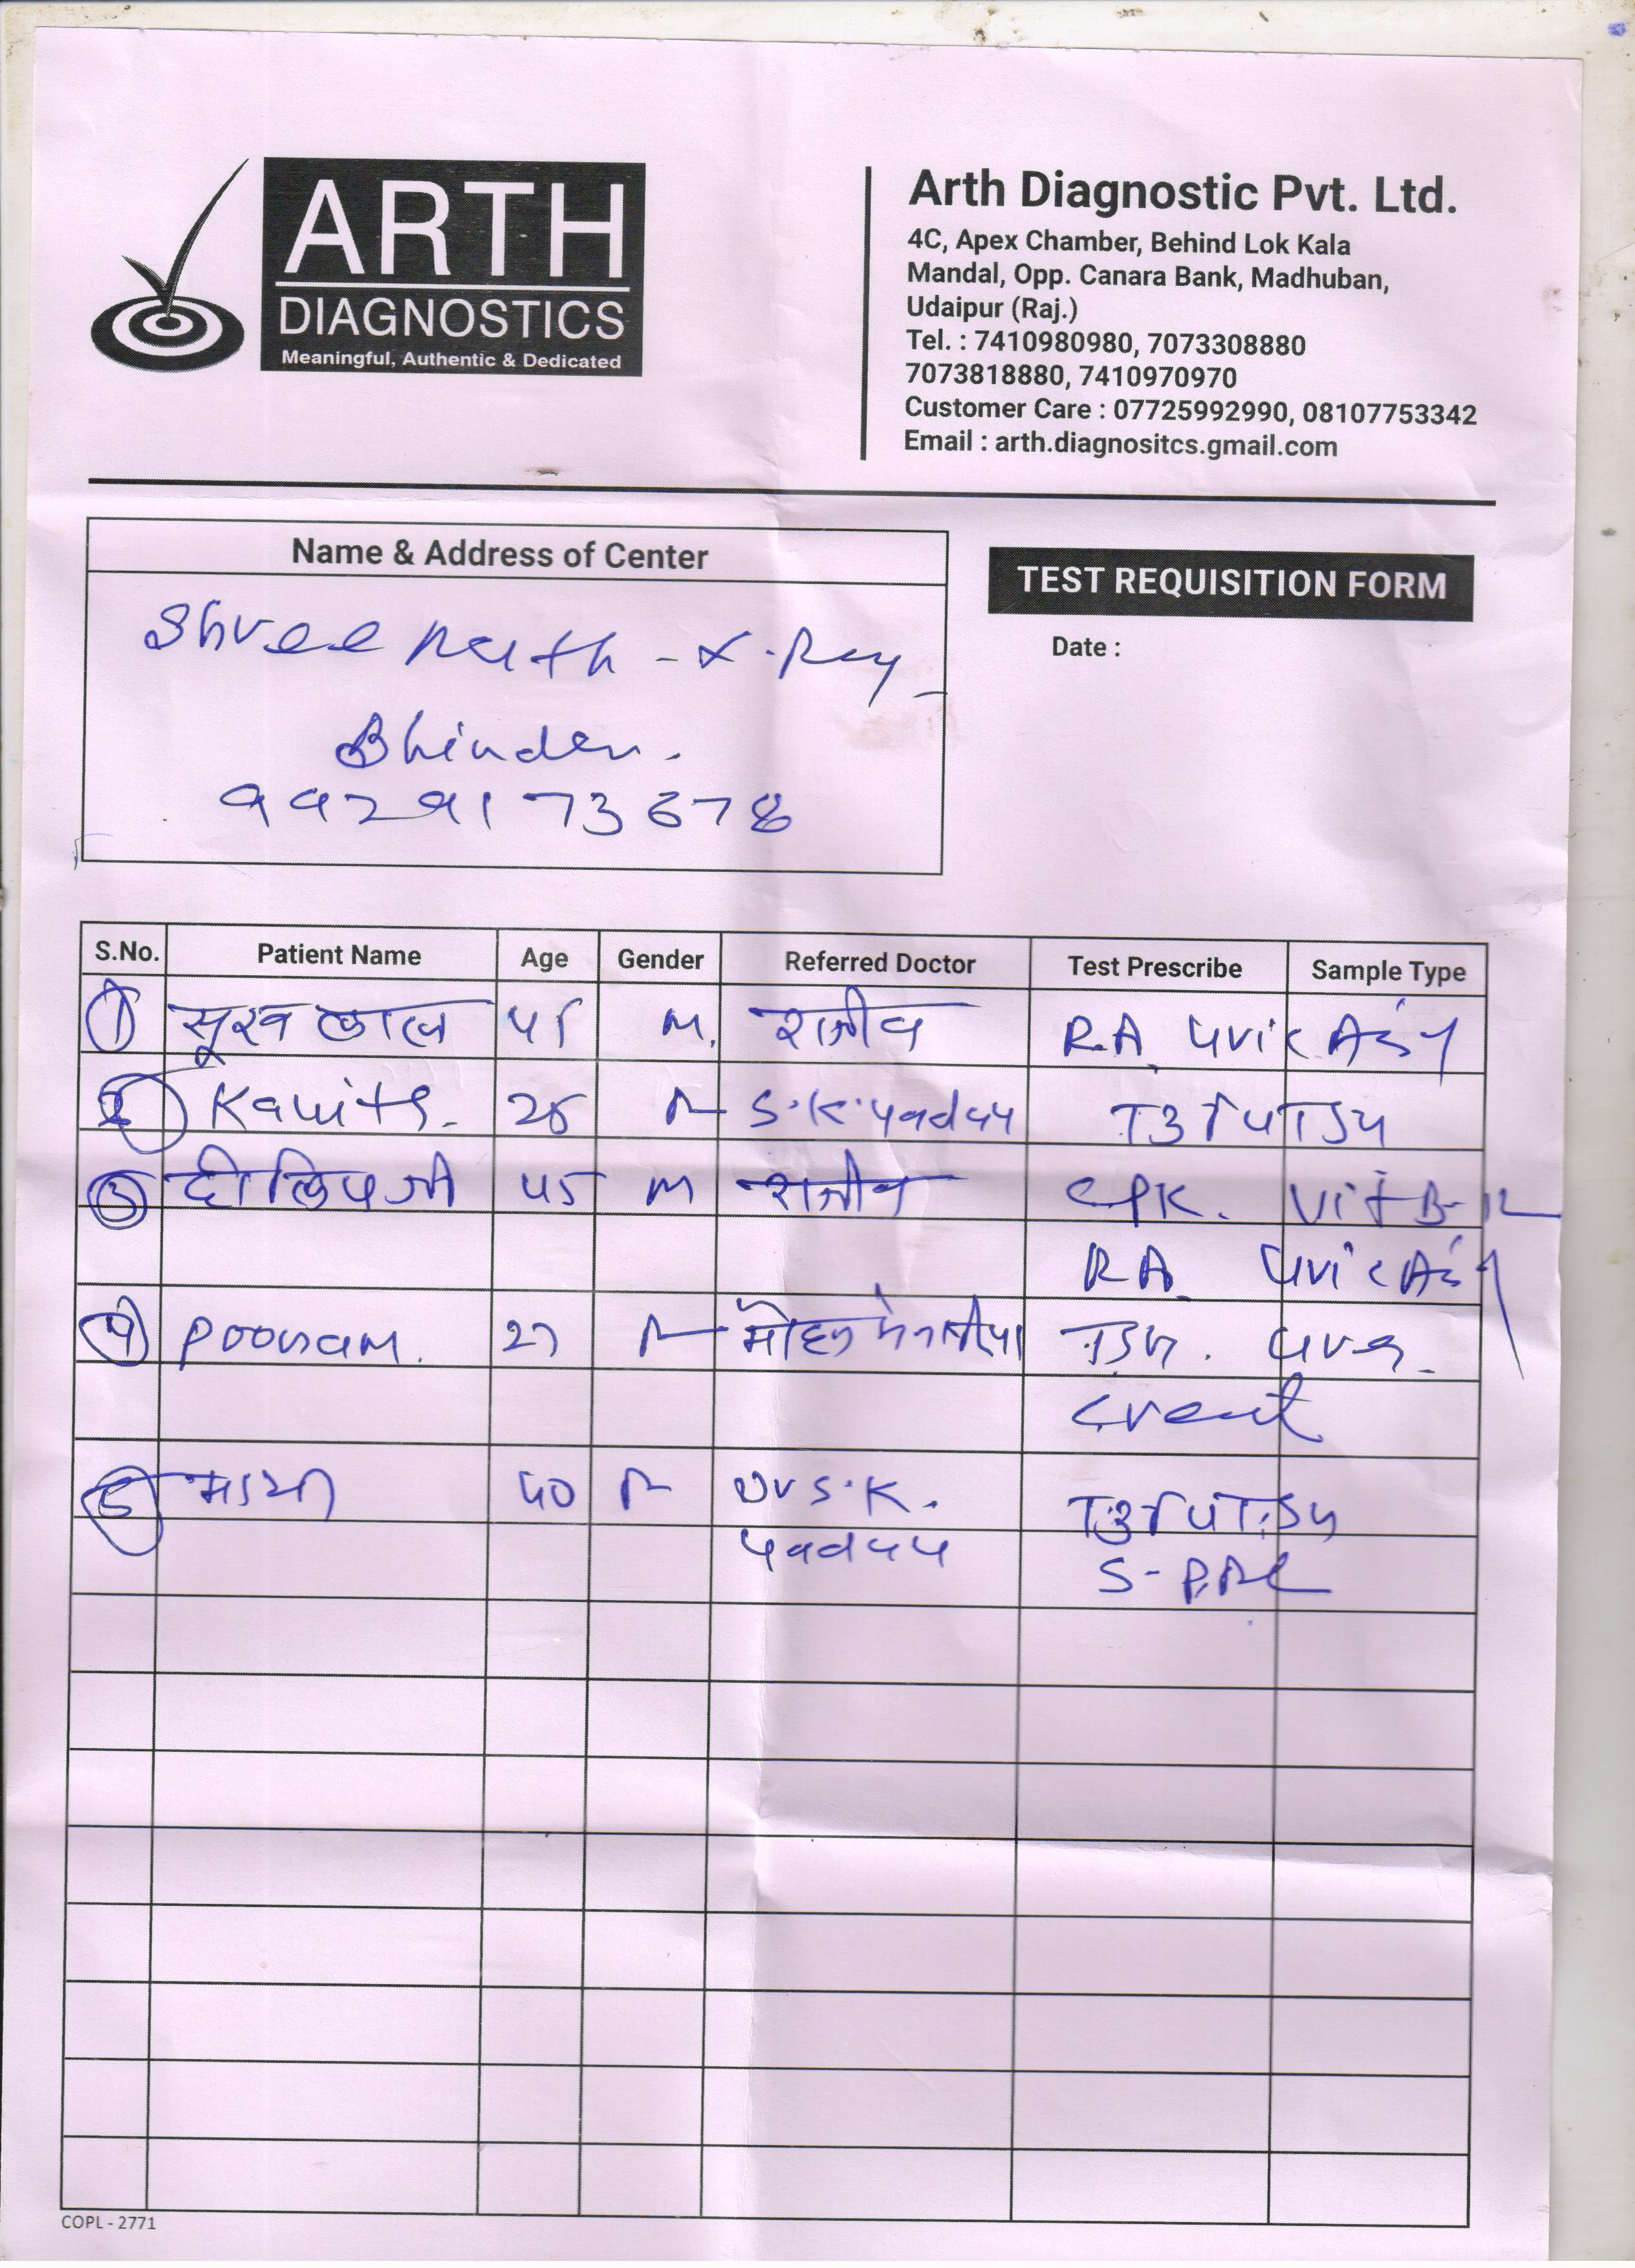 ARTH
DIAGNOSTICS
Meaningful, Authentic & Dedicated
Arth Diagnostic Pvt. Ltd.
4C, Apex Chamber, Behind Lok Kala
Mandal, Opp. Canara Bank, Madhuban,
Udaipur (Raj.)
Tel. : 7410980980, 7073308880
7073818880, 7410970970
Customer Care : 07725992990, 08107753342
Email : arth.diagnositcs.gmail.com
Name & Address of Center
TEST REQUISITION FORM
Date :
Shree Nath - X-Ray
Bhinder.
9929173678
S.No. Patient Name Age Gender Referred Doctor Test Prescribe Sample Type
1 सुख लाल 45 M. राजीव R.A. Uric Acid
2 Kavita 26 F S.K. Yadav T3 T4 TSH
3 दीलिप जी 45 M राजीव CPK. Vit B-12
R.A. Uric Acid
4 Poonam. 27 F मोहन TSH. Urea
Creat
5 40 F Dr S.K. T3 T4 TSH
Yadav S-PRL
COPL - 2771